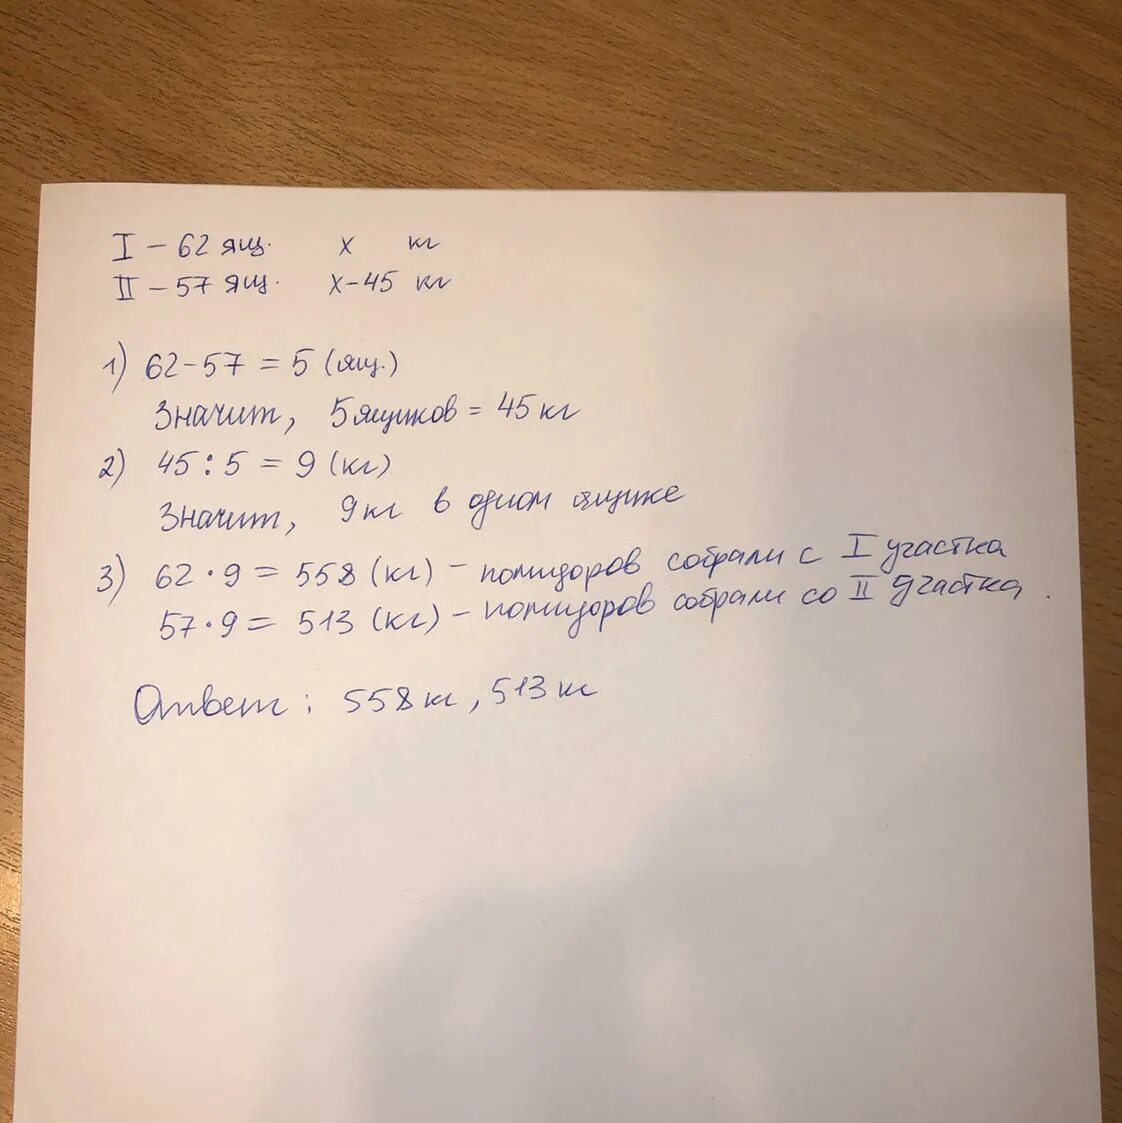 I – 62 ящ. x кг
II – 57 ящ. x-45 кг
1) 62-57 = 5 (ящ.)
Значит, 5 ящиков = 45 кг
2) 45 : 5 = 9 (кг)
Значит, 9 кг в одном ящике
3) 62 · 9 = 558 (кг) – помидоров собрали с I участка
57 · 9 = 513 (кг) – помидоров собрали со II участка.
Ответ: 558 кг, 513 кг